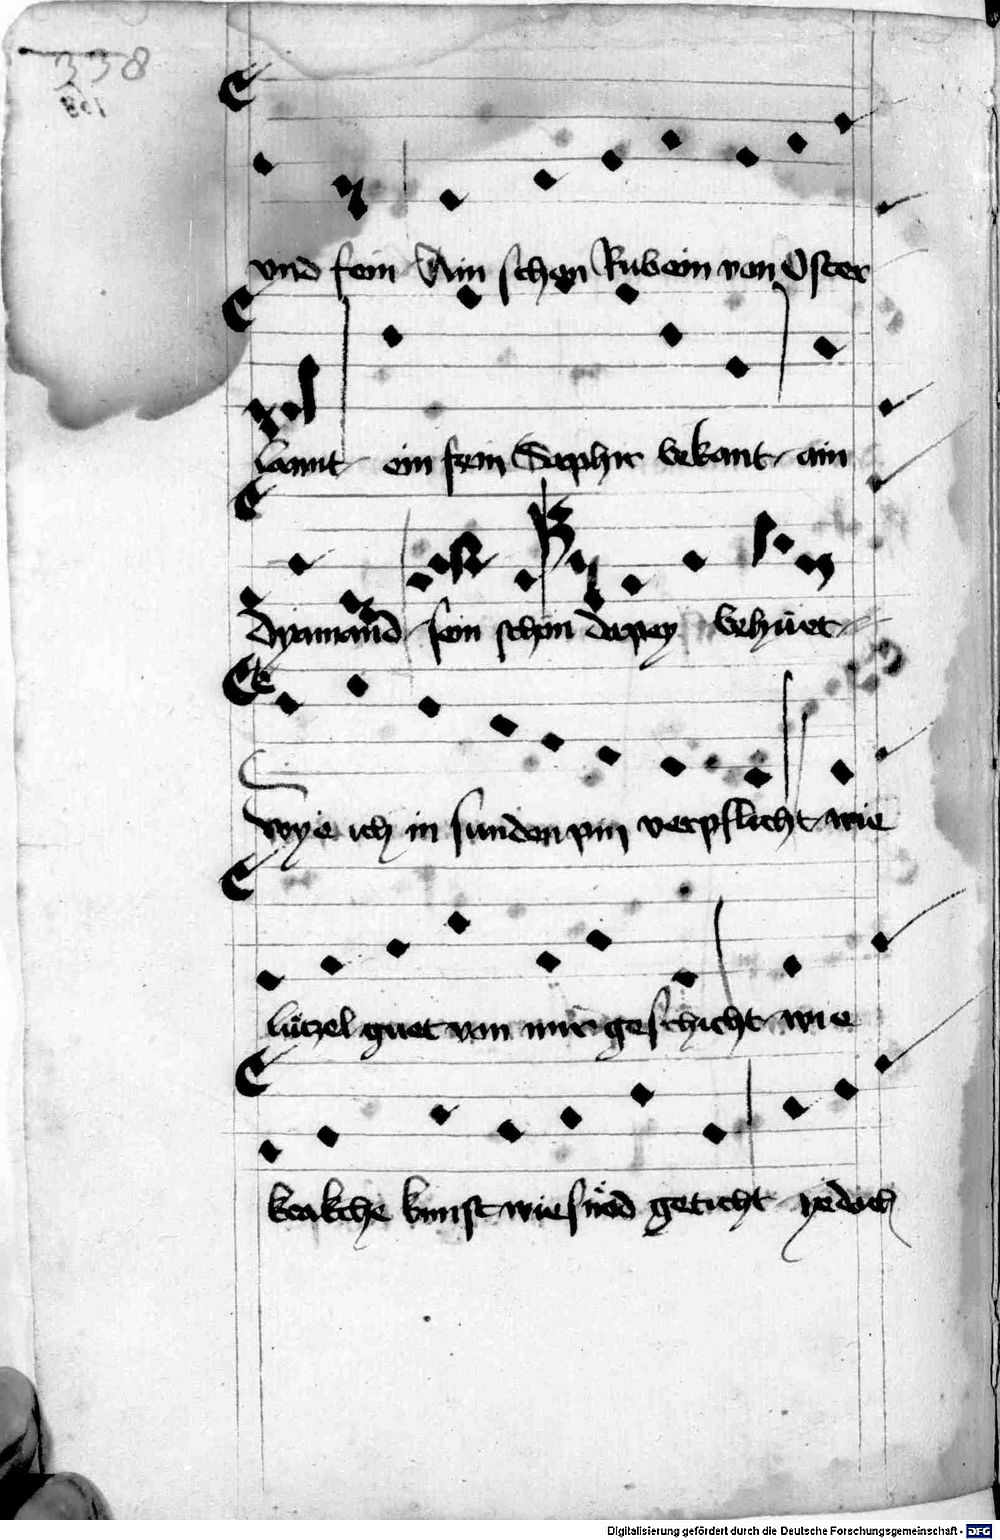 338
vnd fein Ain schon Rubein von Oster
lannt ein fein Saphir bekant ain
dyamand fein schon dapey behüet
wye ich in sunden pin verpflicht wie
lützel guet von mir geschicht wie
krankche kunst wie snöd geticht yedoch
Digitalisierung gefördert durch die Deutsche Forschungsgemeinschaft - DFG